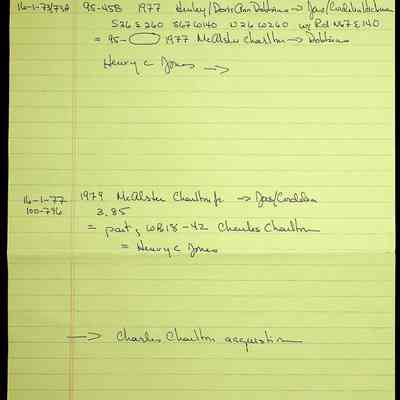 16-1-73/73A 95-458 1977 Henley/Doris Ann Dobbins → Jas/Cordelia Hickman
S26E260 S67W140 N26W260 w/ Rd N67E140
= 95- 1977 McAlster Charlton → Dobbins
Henry C Jones →
16-1-77 1979 McAlster Charlton Jr. → Jas/Cordelia
100-796 3.85
= part of WB18-42 Charles Charlton
= Henry C Jones
→ Charles Charlton acquestion